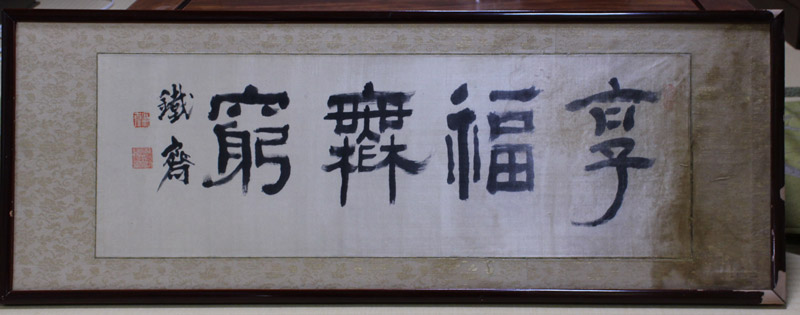 享福無窮
鐵齋